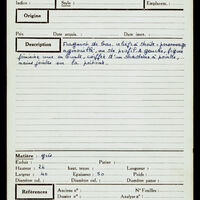 Indice : Style : Emplacem. :
Origine
Prix Date acquis. Date inscr.
Description Fragment de bas-relief à droite : personnage
agenouillé, vu de profil à gauche, figure
féminine vue de buste, coiffée d'un à pointe,
mains jointes sur la poitrine.
Matière : grès
Enduit : Patine :
Hauteur : 26 haut. tenon : Longueur :
Largeur : 40 Epaisseur : 20 Poids
Diamètre col. : Diamètre panse :
Références Ancien n° : N° Feuilles :
Dossier n° : Analyse n° :